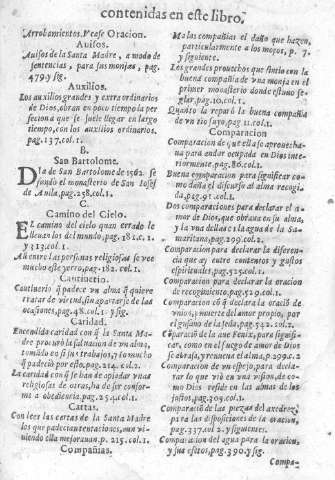 contenidas en este libro.
Arrobamientos. Vease Oracion.
Avisos.
Avisos de la Santa Madre, a modo de
sentencias, para sus monjas, pag.
479. y sig.
Auxilios.
Los auxilios grandes y extraordinarios
de Dios, obran en poco tiempo la per
feccion a que se suele llegar en largo
tiempo, con los auxilios ordinarios.
pag. 137. col. 1.
B.
San Bartolome.
Dia de San Bartolome de 1562. se
fundò el monasterio de San Iosef
de Auila, pag. 258. col. 1.
C.
Camino del Cielo.
EL camino del cielo quan errado le
lleuan los del mundo, pag. 181. c. 1
y 213. col. 1.
Aū entre las personas religiosas se vee
mucho este yerro, pag. 182. col. 1.
Cautiuerio.
Cautiuerio q̄ padece vn alma q̄ quiere
tratar de virtud, sin apartarse de las
ocasiones, pag. 48. col. 1. y sig.
Caridad.
Encendida caridad con q̄ la Santa Ma
dre procurò la saluacion de vn alma,
tomãdo co si sus trabajos, y lo mucho
q̄ padeciò por esto, pag. 214. col. 2.
La caridad con q̄ se han de ayudar vnas
religiosas de otras, ha de ser confor
me a obediencia, pag. 254. col. 1.
Cartas.
Con leer las cartas de la Santa Madre
los que padecian tentaciones, aun vi-
uiendo ella mejorauan. p. 215. col. 1.
Compañias.
Malas compañias el daño que hazen,
particularmente a los moços, p. 7.
y siguiente.
Los grandes prouechos que sintio con la
buena compañia de vna monja en el
primer monasterio donde estuuo se-
glar, pag. 10. col. 1.
Quanto la reparò la buena compañia
de vn tio suyo, pag. 11. col. 1.
Comparacion
Comparacion de, que ella se aprouecha-
ua para andar ocupada en Dios inte-
riormente, pag. 86. col. 1.
Buena comparacion para significar co-
mo daña el discurso al alma recogi-
da, pag. 91. col. 1.
Dos comparaciones para declarar el a-
mor de Dios, que obraua en su alma,
y la vna dellas es la agua de la Sa-
maritana, pag. 299. col. 1.
Comparacion para declarar la diferen-
cia que ay entre contentos y gustos
espirituales, pag. 525. col. 1.
Comparacion para declarar la oracion
de recogimiento, pag. 529. col. 1.
Comparacion cō q̄ declara la oraciō de
vniō, y muerte del amor propio, por
el gusano de la seda, pag. 542. col. 2.
Cōparaciō de la aue Fenix, para signifi-
car, como en el fuego de amor de Dios
se abrasa, y renueua el alma, p. 299. c. 2
Comparacion de vn espejo, para decla-
rar lo que viò en vna visiòn, de co-
mo Dios reside en las almas de los
justos, pag. 309. col. 1.
Comparaciō de las pieças del axedrez,
para las disposiciones de la oracion,
pag. 337. col. 2. y siguientes.
Comparacion del agua para la oracion,
y sus efetos, pag. 390. y sig.
Compa-